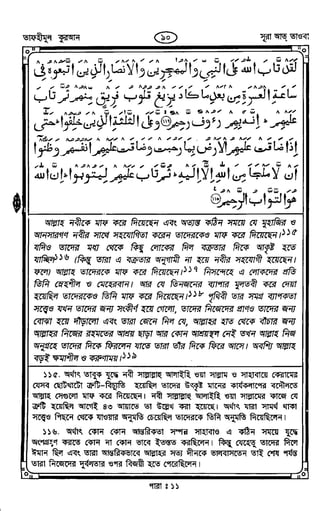 তাফহীমুল কুরআন
৯০
সূরা আত্ তাওবা
لَقَدْ تَابَ اللّٰهُ عَلَى النَّبِيِّ وَالْمُهٰجِرِيْنَ وَالْاَنْصَارِ الَّذِيْنَ اتَّبَعُوْهُ فِيْ
سَاعَةِ الْعُسْرَةِ مِنْۢ بَعْدِ مَا كَادَ يَزِيْغُ قُلُوْبُ فَرِيْقٍ مِّنْهُمْ ثُمَّ تَابَ
عَلَيْهِمْ ؕ اِنَّهٗ بِهِمْ رَءُوْفٌ رَّحِيْمٌ ﴿۱۱۷﴾ وَّعَلَى الثَّلٰثَةِ الَّذِيْنَ خُلِّفُوْا ؕ حَتّٰۤى
اِذَا ضَاقَتْ عَلَيْهِمُ الْاَرْضُ بِمَا رَحُبَتْ وَضَاقَتْ عَلَيْهِمْ اَنْفُسُهُمْ وَظَنُّوْۤا
اَنْ لَّا مَلْجَاَ مِنَ اللّٰهِ اِلَّاۤ اِلَيْهِ ؕ ثُمَّ تَابَ عَلَيْهِمْ لِيَتُوْبُوْا ؕ اِنَّ اللّٰهَ
هُوَ التَّوَّابُ الرَّحِيْمُ ﴿۱۱۸﴾
আল্লাহ নবীকে মাফ করে দিয়েছেন এবং অত্যন্ত কঠিন সময়ে যে মুহাজির ও
আনসারগণ নবীর সাথে সহযোগিতা করেন তাদেরকেও মাফ করে দিয়েছেন।১১৫
যদিও তাদের মধ্য থেকে কিছু লোকের দিল বক্রতার দিকে আকৃষ্ট হতে
যাচ্ছিল১১৬ (কিন্তু তারা এ বক্রতার অনুগামী না হয়ে নবীর সহযোগী হয়েছেন।
ফলে) আল্লাহ তাদেরকে মাফ করে দিয়েছেন।১১৭ নিসন্দেহে এ লোকদের প্রতি
তিনি স্নেহশীল ও মেহেরবান। আর যে তিনজনের ব্যাপার মুলতবী করে দেয়া
হয়েছিল তাদেরকেও তিনি মাফ করে দিয়েছেন।১১৮ পৃথিবী তার সমগ্র ব্যাপকতা
সত্ত্বেও যখন তাদের জন্য সংকীর্ণ হয়ে গেলো, তাদের নিজেদের প্রাণও তাদের জন্য
বোঝা হয়ে দাঁড়ালো এবং তারা জেনে নিল যে, আল্লাহর হাত থেকে বাঁচার জন্য
আল্লাহর নিজের রহমতের আশ্রয় ছাড়া আর কোন আশ্রয়স্থল নেই তখন আল্লাহ নিজ
অনুগ্রহে তাদের দিকে ফিরলেন যাতে তারা তাঁর দিকে ফিরে আসে। অবশ্যি আল্লাহ
বড়ই ক্ষমাশীল ও করুণাময়।১১৯
১১৫. অর্থাৎ তাবুক যুদ্ধে নবী সাল্লাল্লাহু আলাইহি ওয়া সাল্লাম ও সাহাবায়ে কেরামের
যেসব ছোটখাটো ত্রুটি-বিচ্যুতি হয়েছিল তাদের উৎকৃষ্ট মানের কার্যকলাপের বদৌলতে
আল্লাহ সেগুলো মাফ করে দিয়েছেন। নবী সাল্লাল্লাহু আলাইহি ওয়া সাল্লামের কাজে যে
ত্রুটি হয়েছিল আগেই ৪৩ আয়াতে তা উল্লেখ করা হয়েছে। অর্থাৎ যারা সামর্থ থাকা
সত্ত্বেও পিছনে থেকে যাওয়ার অনুমতি চেয়েছিল তাদেরকে তিনি অনুমতি দিয়েছিলেন।
১১৬. অর্থাৎ কোন কোন আন্তরিকতা সম্পন্ন সাহাবাও এ কঠিন সময়ে যুদ্ধে
অংশগ্রহণ করতে কোন না কোন ভাবে ইতস্তত করছিলেন। কিন্তু যেহেতু তাদের দিলে
ঈমান ছিল এবং তারা আন্তরিকভাবে আল্লাহর সত্য দীনকে ভালবাসতেন তাই শেষ পর্যন্ত
তারা নিজেদের দুর্বলতার ওপর বিজয়ী হতে পেরেছিলেন।
পারা : ১১